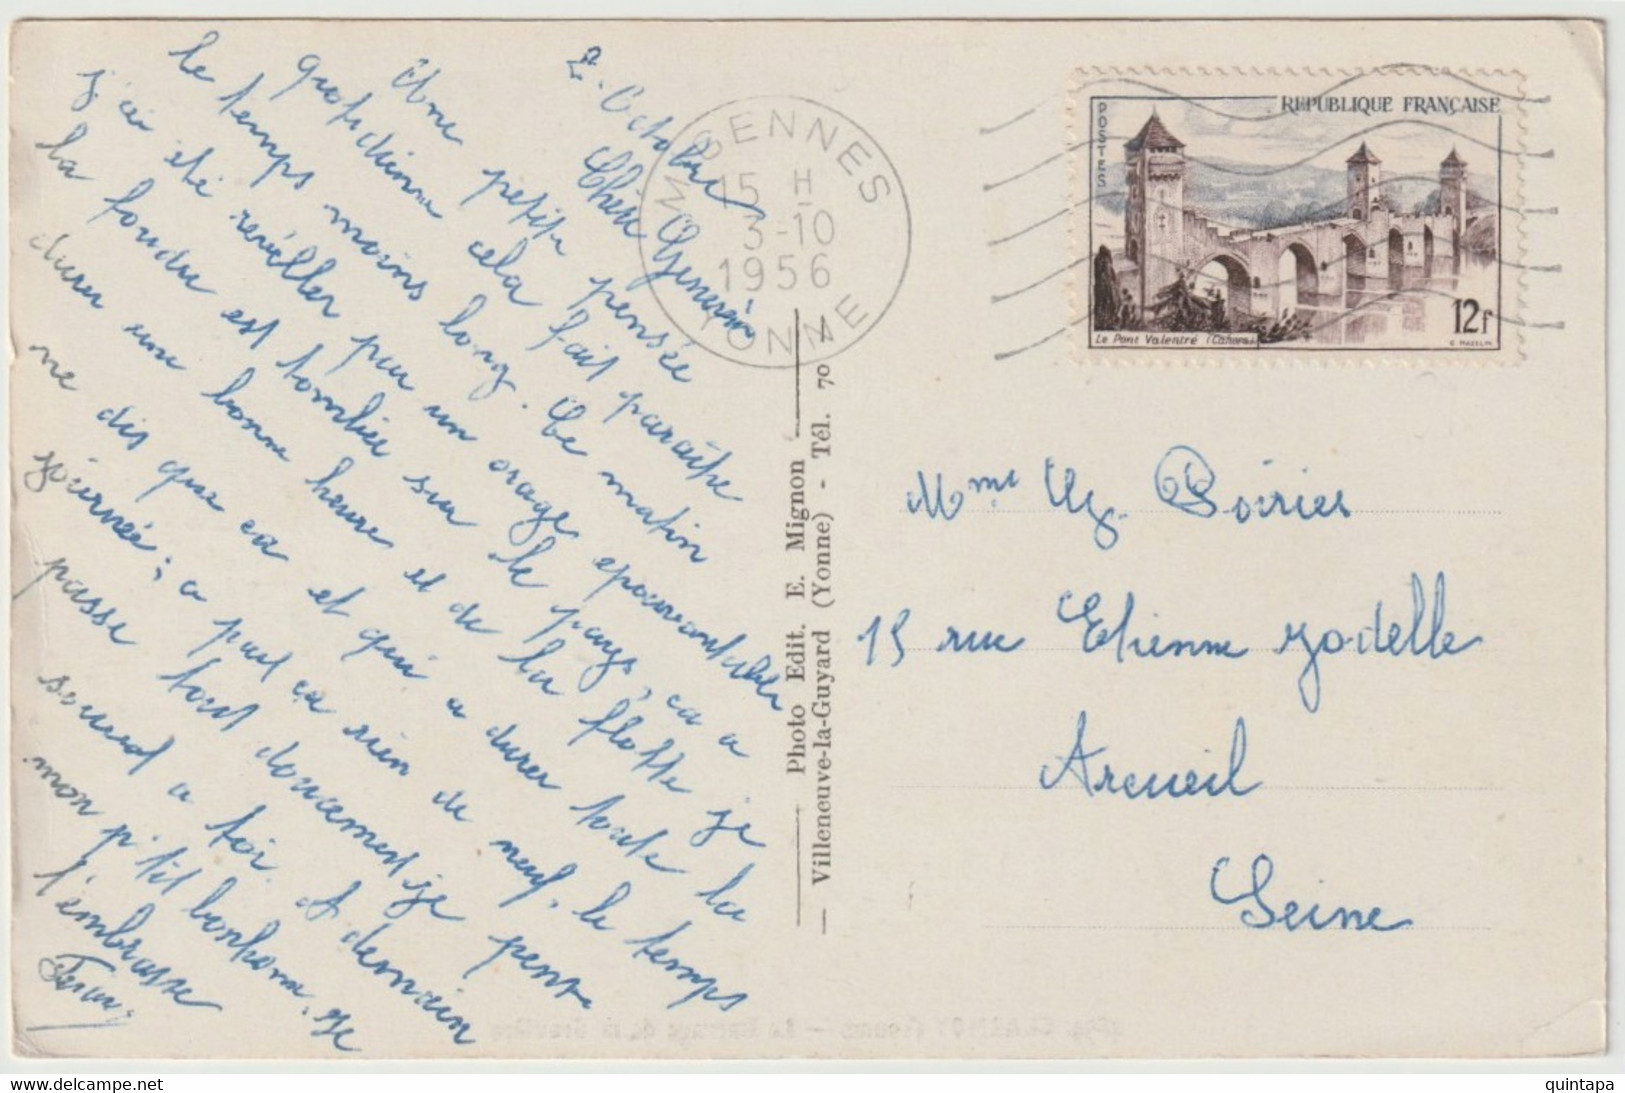 2. Octobre
Chère Geneviève
Une petite pensée
quotidienne cela fait paraître
le temps moins long. Ce matin
j'ai été reveiller par un orage epouvantable
la foudre est tombée sur le pays, ca a
durer une bonne heure et de la flotte je
ne dis que ca et qui a durer toute la
journée; a part ca rien de neuf, le temps
passe tout doucement je pense
souvent a toi. A demain
mon p'tit bonhomme. Je
t'embrasse
MIGENNES
15 H
3-10
1956
YONNE
POSTES
REPUBLIQUE FRANÇAISE
Le Pont Valentré (Cahors)
12f
Photo Edit. E. Mignon
Villeneuve-la-Guyard (Yonne) - Tél. 70
Mme Poirier
15 rue Etienne Jodelle
Arcueil
Seine
www.delcampe.net
quintapa